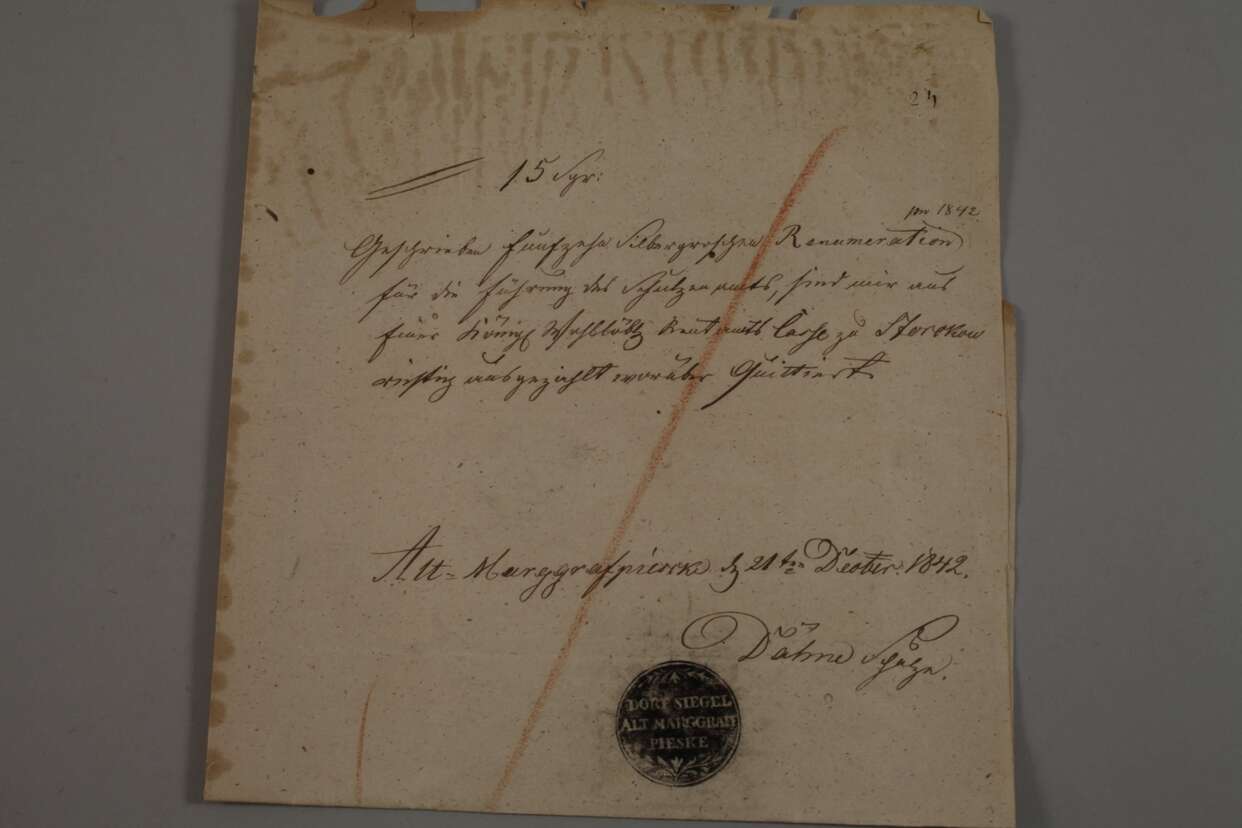 24
15 Sgr:
pro 1842
Geschrieben Funfzehn Silbergroschen Renumeration
für die Führung des Schulzenamts, sind mir aus
Einer Königl Wohllöbl Rentamts Casse zu Storckow
richtig ausgezahlt worüber Quittiert
Alt-Marggrafpieske d 21ten Dcober. 1842.
Dähne Schulze.
DORF SIEGEL
ALT MARGGRAFF
PIESKE